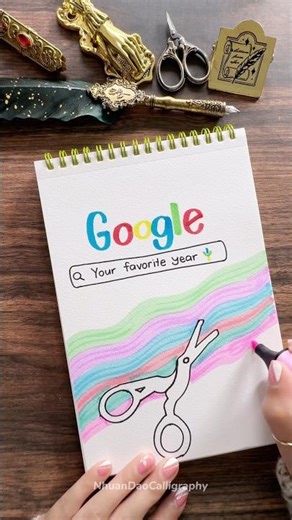 Google
Your favorite year
NhuanDaoCalligraphy